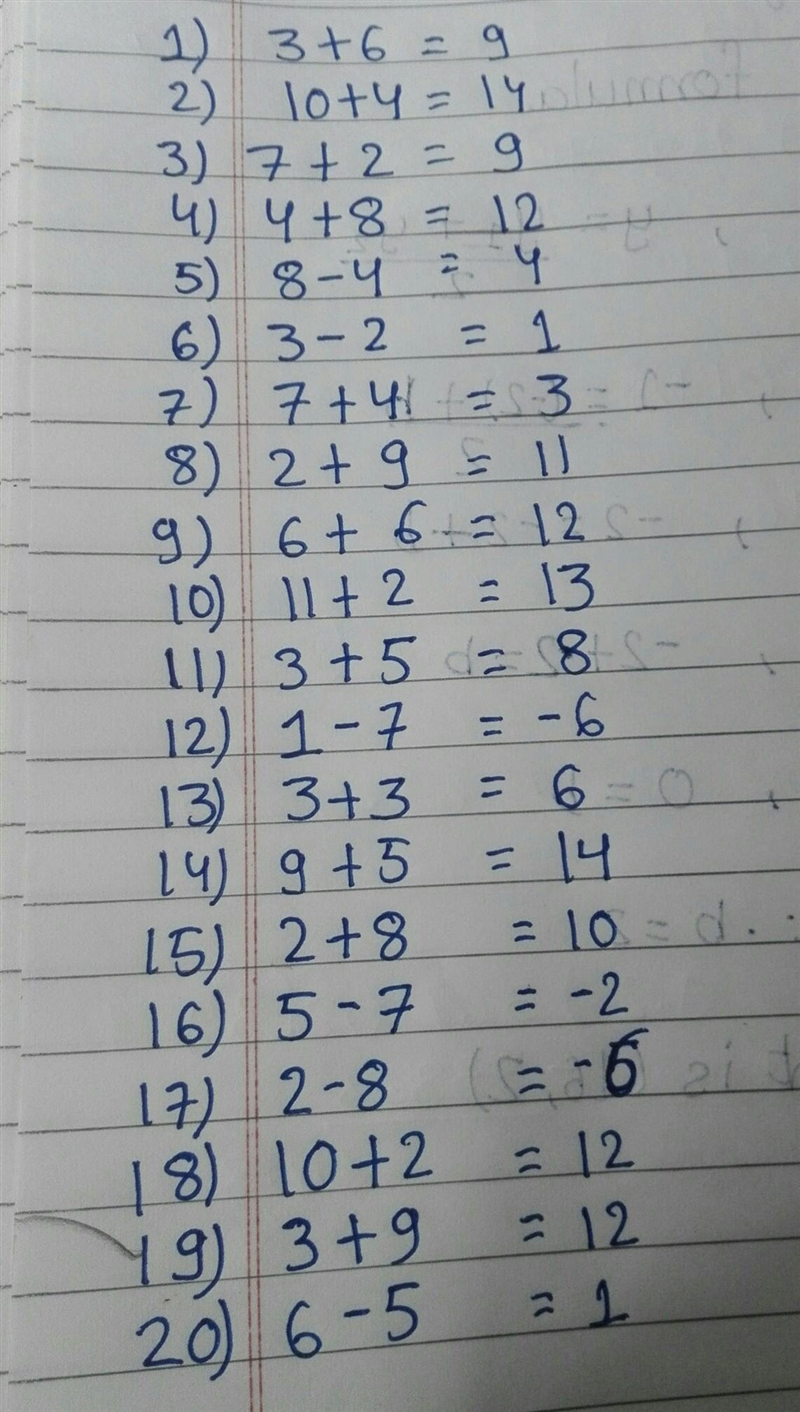 1) 3+6 = 9
2) 10+4 = 14
3) 7+2 = 9
4) 4+8 = 12
5) 8-4 = 4
6) 3-2 = 1
7) 7+4 = 3
8) 2+9 = 11
9) 6+6 = 12
10) 11+2 = 13
11) 3+5 = 8
12) 1-7 = -6
13) 3+3 = 6
14) 9+5 = 14
15) 2+8 = 10
16) 5-7 = -2
17) 2-8 = -6
18) 10+2 = 12
19) 3+9 = 12
20) 6-5 = 1